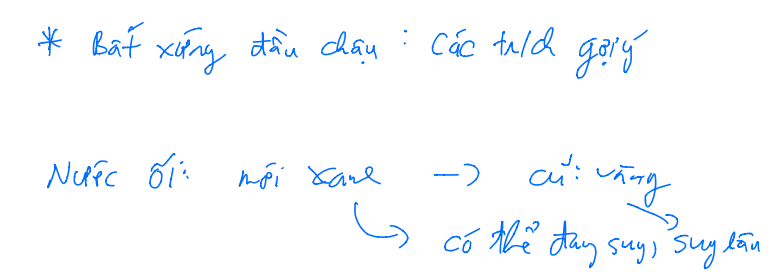 * Bất xứng đầu chậu : Các tr/ch gợi ý
Nước ối: mới xanh → cũ: vàng
có thể đang suy, suy lâu